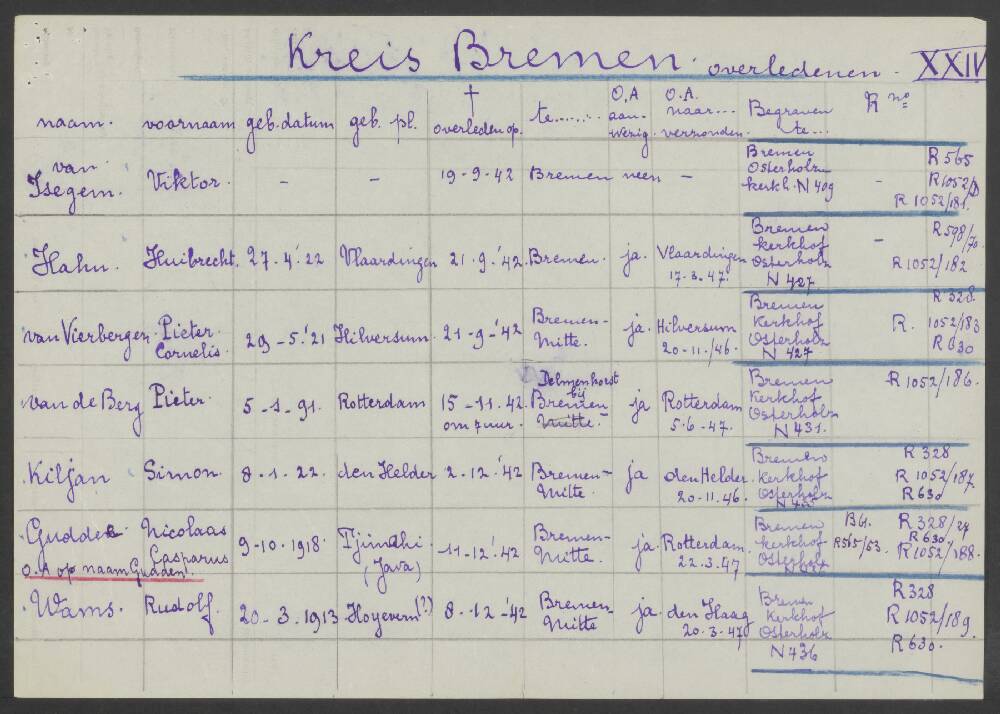 Kreis Bremen. overledenen. XXIV
naam. voornaam geb. datum geb. pl. † overleden op. te....... O.A aan- wezig. O.A. naar.... verzonden. Begraven te... R no
van Isegem. Viktor. - - 19-9-42 Bremen neen - Bremen Osterholzn kerkh. N 409 - R 565 R1052/ R 1052/181.
Hahn. Huibrecht. 27.4.'22 Vlaardingen 21.9.'42 Bremen. ja. Vlaardingen 17-3.47. Bremen kerkhof Osterholzn N 427. - R 598/70. R1052/182
van Vierbergen. Pieter Cornelis. 29-5.'21 Hilversum. 21-9-'42 Bremen- Mitte. ja. Hilversum 20-11-/46. Bremen Kerkhof Osterholzn N 427 R. R 328. 1052/183 R 630
van de Berg Pieter. 5-1-91. Rotterdam 15-11-42. om 7 uur. Delmenhorst bij Bremen Mitte. ja Rotterdam 5-6-47. Bremen Kerkhof Osterholzn N 431. R1052/186.
Kiljan Simon. 8-1-22. den Helder 2-12-'42 Bremen- Mitte. ja den Helder. 20-11-46. Bremen Kerkhof Osterholzn R 328 R 1052/187. R 630
Gudde Nicolaas Casparus 9-10-1918. Tjimahi (Java) -11-12-'42 Bremen- Mitte. ja. Rotterdam 22.3.47 Bremen kerkhof Osterholzn Bl. R565/53. R 328/24 R 630 R1052/188.
O.A op naam Gudden.
Wams. Rudolf. 20-3.1913 Hoyevern(?) 8-12-'42 Bremen- Mitte ja. den Haag 20-3-47 Bremen Kerkhof Osterholz N 436 R 328 R 1052/189. R 630.